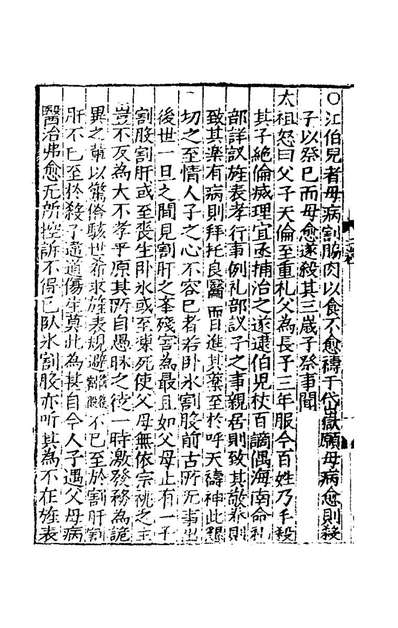 ○江伯兒者母病割肋肉以食不愈禱于岱嶽願母病愈則殺
子以祭已而母愈遂殺其三歲子祭事聞
太祖怒曰父子天倫至重礼父為長子三年服今百姓乃手殺
其子絶倫滅理宜亟捕治之遂逮伯兒杖百謫海南命礼
部詳议旌表孝行事例礼部议子之事親居則致其敬养則
致其楽有病則拜托良醫而日進其藥至扵呼天禱神此懇
切之至情人子之心不容已者若卧氷割股前古所无事出
後世一旦之間見割肝之孝殘害為最且如父母止有一子
割股割肝或至喪生卧氷或至凍死使父母無依宗祧乏主
豈不反為大不孝乎原其所自愚昧之徒一時激發務為詭
異之華以驚俗駭世希求旌表規避割股不已至於割肝割
肝不已至扵殺子違道傷生莫此為甚自今人子遇父母病
醫治弗愈无所控訴不得已卧氷割股亦听其為不在旌表